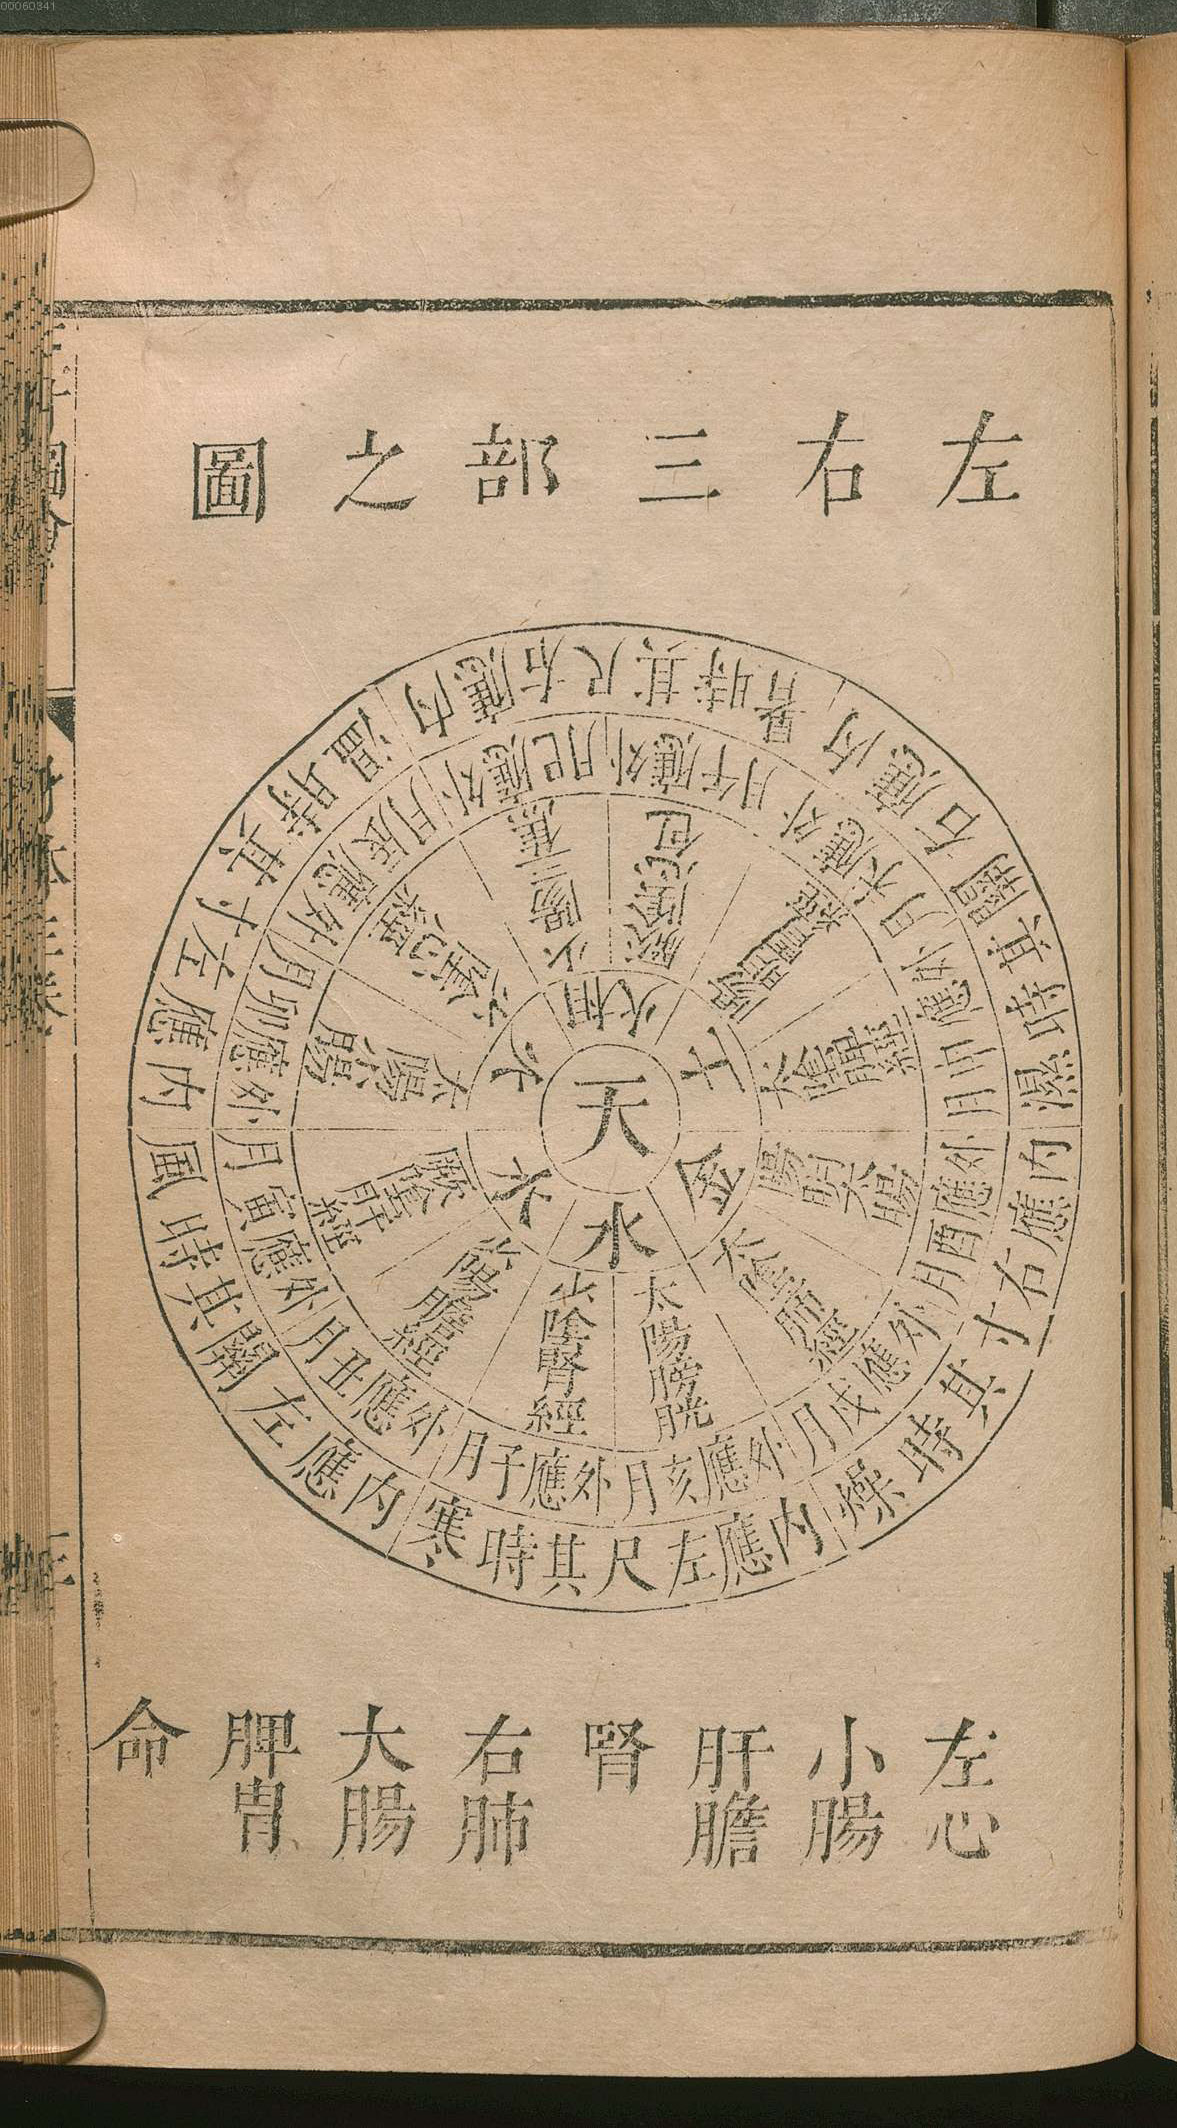 00060341
左右三部之圖
天
火
相火
土
金
水
木
少陰心經
少陽三焦
厥陰心包
陽明胃經
太陰脾經
陽明大腸
太陰肺經
太陽膀胱
少陰腎經
少陽膽經
厥陰肝經
太陽小腸
外應辰月
外應巳月
外應午月
外應未月
外應申月
外應酉月
外應戌月
外應亥月
外應子月
外應丑月
外應寅月
外應卯月
內應右尺其時暑
內應右關其時濕
內應右寸其時燥
內應左尺其時寒
內應左關其時風
內應左寸其時溫
左心
小腸
肝膽
腎
右肺
大腸
脾胃
命